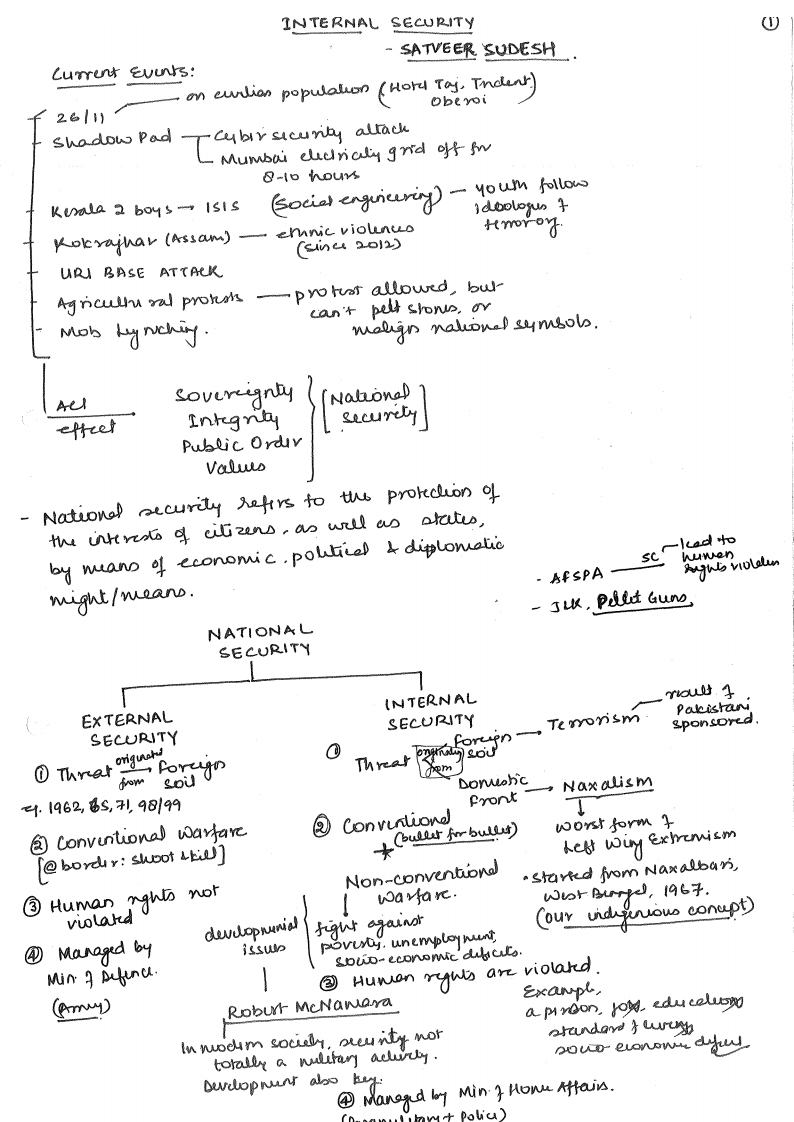 INTERNAL SECURITY
①
- SATVEER SUDESH.
Current Events:
- 26/11 on civilian population (Hotel Taj, Trident, Oberoi)
- Shadow Pad - Cyber security attack
- Mumbai electricity grid off for
8-10 hours
- Kerala 2 boys → ISIS (Social engineering) - youth follow
ideologies of
terror org.
- Kokrajhar (Assam) - ethnic violences
(since 2012)
- URI BASE ATTACK
- Agricultural protests - protest allowed, but
can't pelt stones, or
malign national symbols.
- Mob Lynching.
All
effect
Sovereignty
Integrity
Public Order
Values
[National
security]
- National security refers to the protection of
the interests of citizens, as well as states,
by means of economic, political & diplomatic
might/means.
- AFSPA - SC - lead to
human
rights violation
- J&K, Pellet Guns
NATIONAL
SECURITY
EXTERNAL
SECURITY
① Threat originated from → foreign
soil
eg. 1962, 65, 71, 98/99
② Conventional Warfare
[@ border: shoot & kill]
③ Human rights not
violated
④ Managed by
Min. of Defence.
(Army)
INTERNAL
SECURITY
① Threat originating from
foreign
soil → Terrorism - result of
Pakistani
sponsored.
Domestic
front → Naxalism
worst form of
Left Wing Extremism
• Started from Naxalbari,
West Bengal, 1967.
(our indigenious concept)
② Conventional
(bullet for bullet)
Non-conventional
Warfare.
fight against
poverty, unemployment,
socio-economic deficits.
developmental
issues
Robert McNamara
In modern society, security not
totally a military activity.
Development also key.
③ Human rights are violated.
Example,
a person, job, education
standard of living
socio-economic deficit
④ Managed by Min. of Home Affairs.
(Paramilitary + Police)